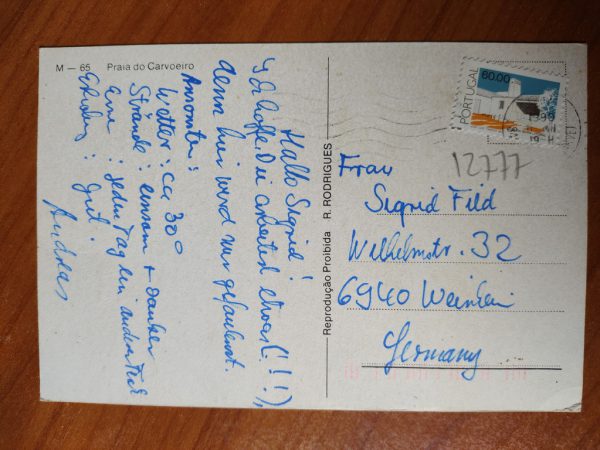 M — 65 Praia do Carvoeiro
Hallo Sigrid!
Ich hoffe, Du arbeitest etwas (!!!),
denn hier wird nur gefaulenzt.
Ansonsten:
Wetter: ca 30°
Strände: einsam + sauber
: jeden Tag ein anderer
Erholung: gut
Andreas
Reprodução Proibida R. RODRIGUES
PORTUGAL
60.00
12777
Frau
Sigrid Feld
Wilhelmstr. 32
6940 Weinheim
Germany